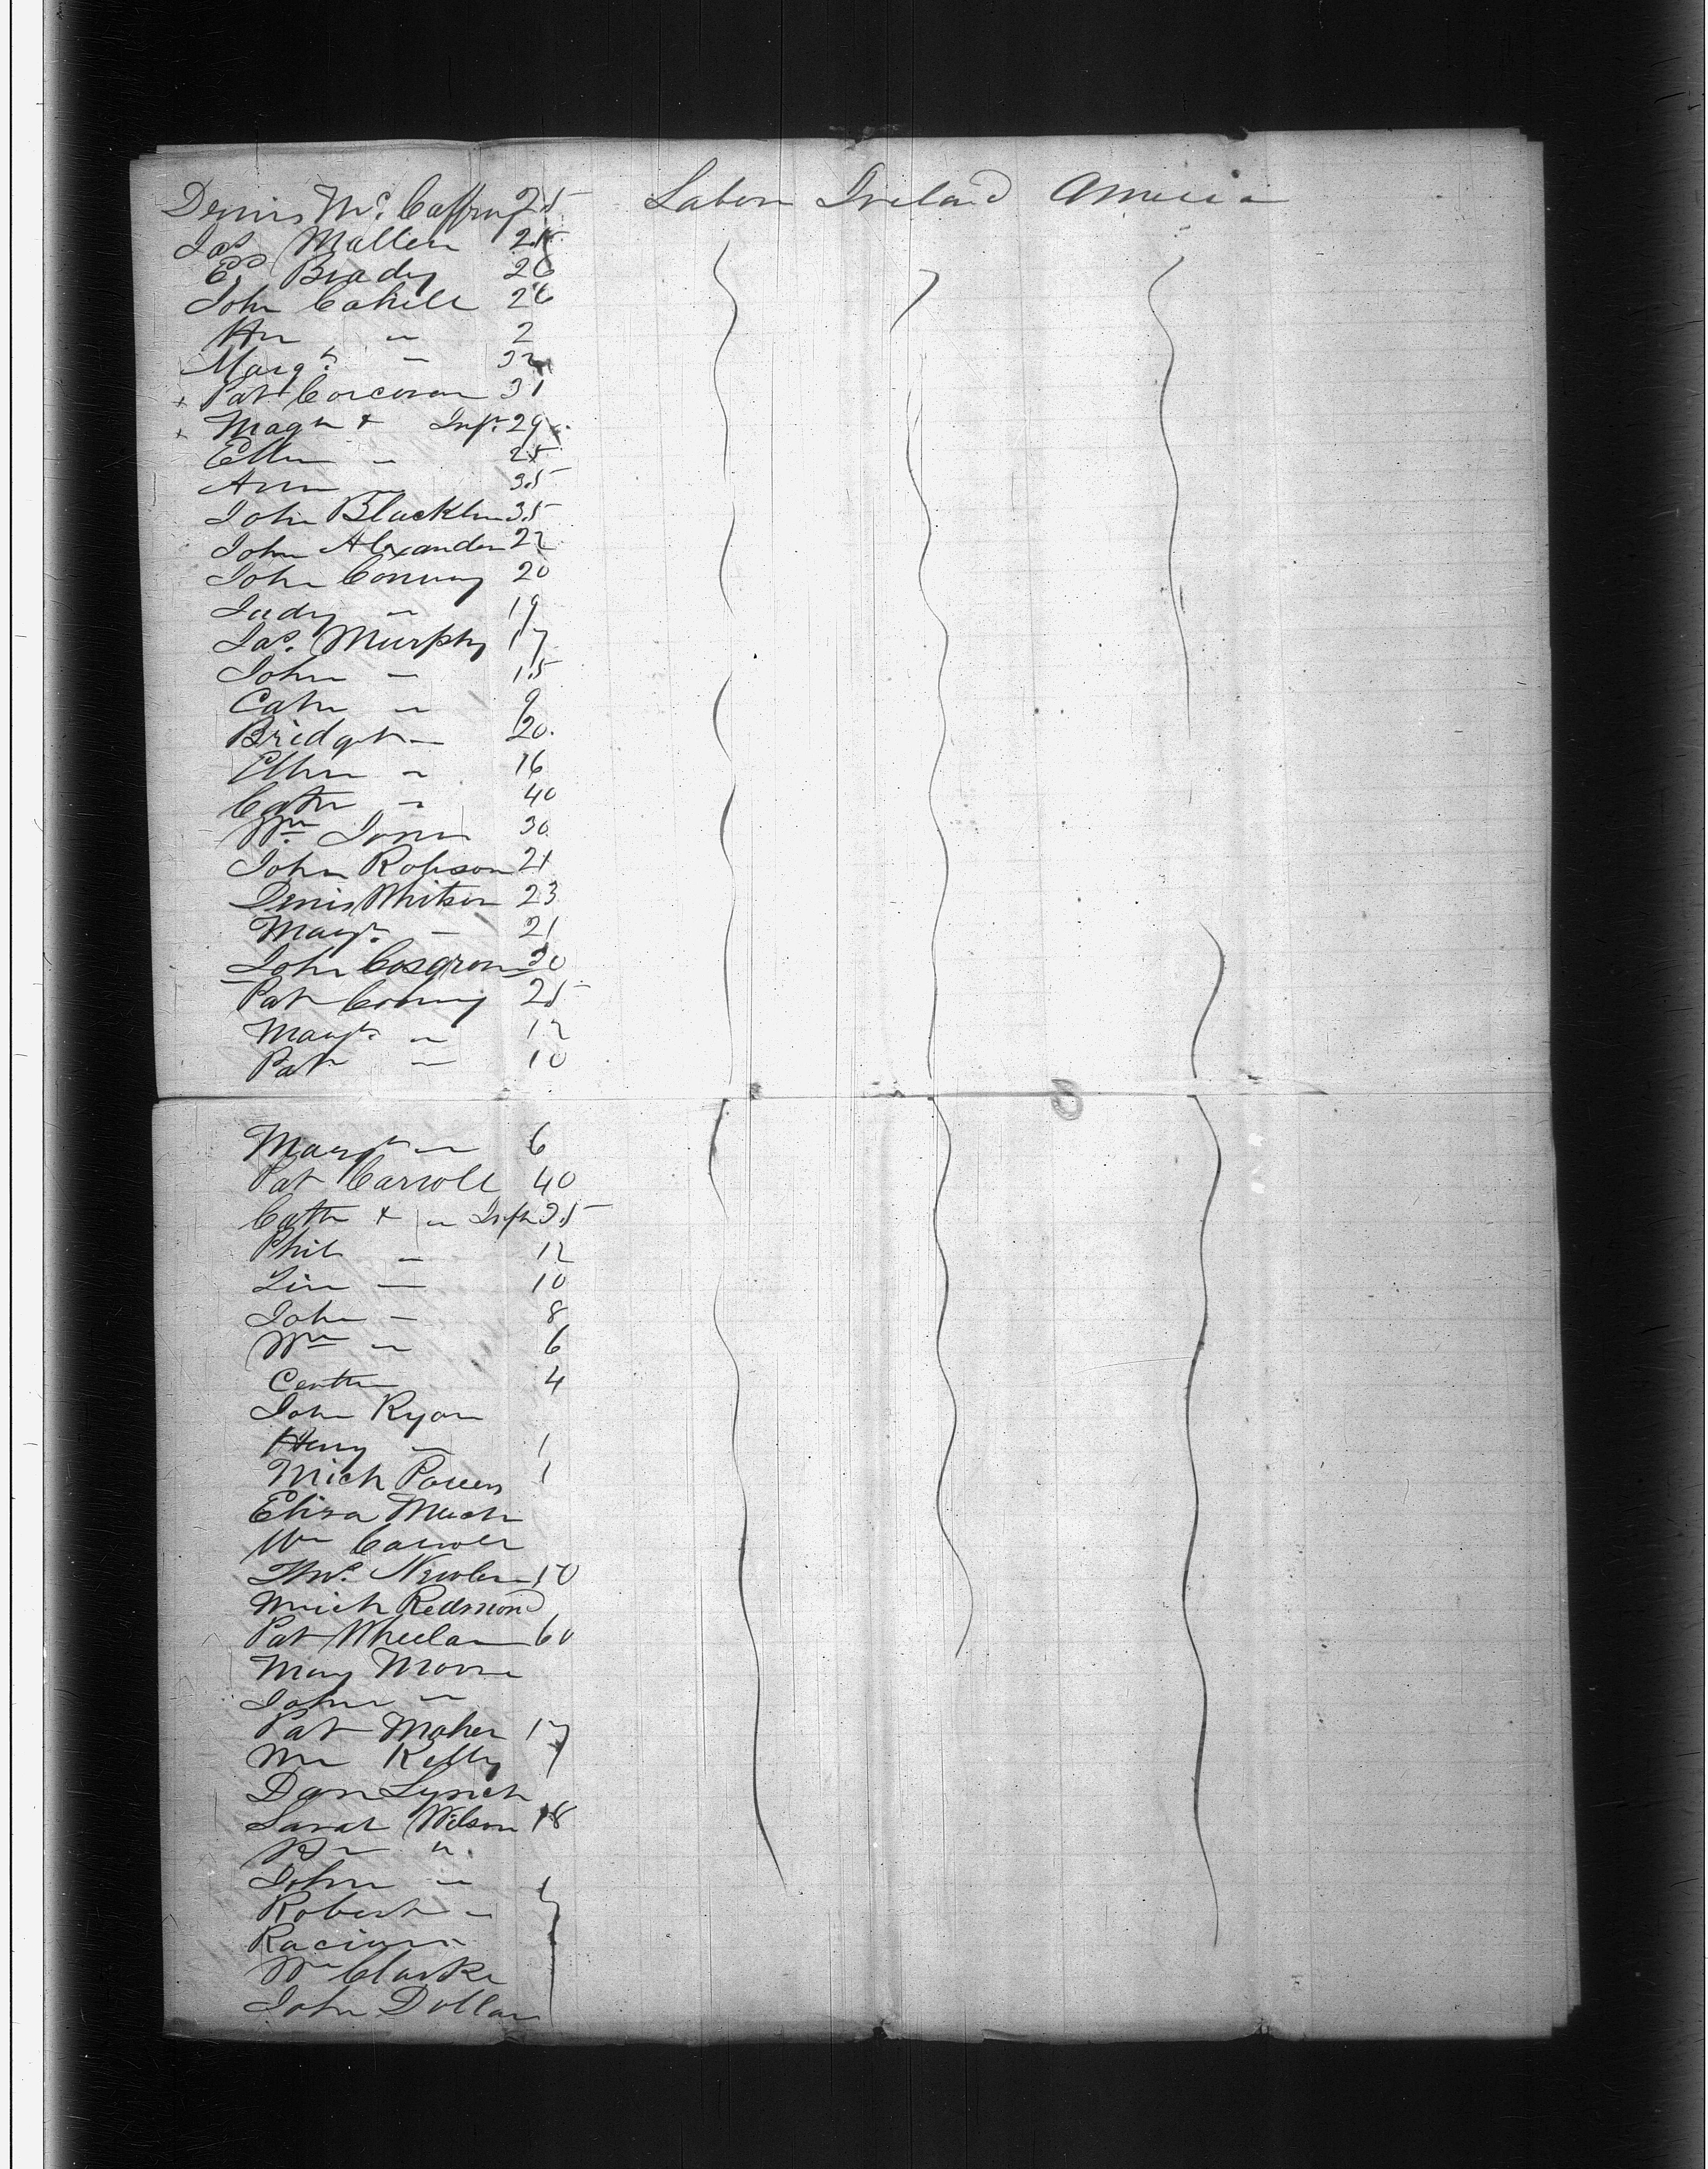 Denis McCaffrey 25 Labor Ireland America
Jas Mallen 25
Ed Brady 26
John Cahill 26
Hn " 2
Margt " 32
+ Pat Corcoran 31
+ Magt & Inft 29
Ellen " 25
Ann " 35
John Blackburn 35
John Alexander 22
John Conway 20
Judy " 19
Jas. Murphy 17
John " 15
Cath " 9
Bridget " 20
Ellen " 16
Cath " 40
Wm Jones 30
John Robison 21
Denis Whitson 23
Margt " 21
John Cosgrove 30
Pat Conway 25
Margt " 12
Pat " 10
Margt " 6
Pat Carroll 40
Cath & " Infts 35
Phil " 12
Lin " 10
John " 8
Wm " 6
Cath 4
John Ryan
Henry " 1
Mich Powers 1
Eliza Mack
Wm Carroll
Thos. Newlan 50
Mich Redmond
Pat Wheelan 60
Mary Moore
John "
Pat Maher 17
Wm Kelly
Dan Lynch
Sarah Wilson 18
"
John "
Robert "
Wm Clarke
John Dollan